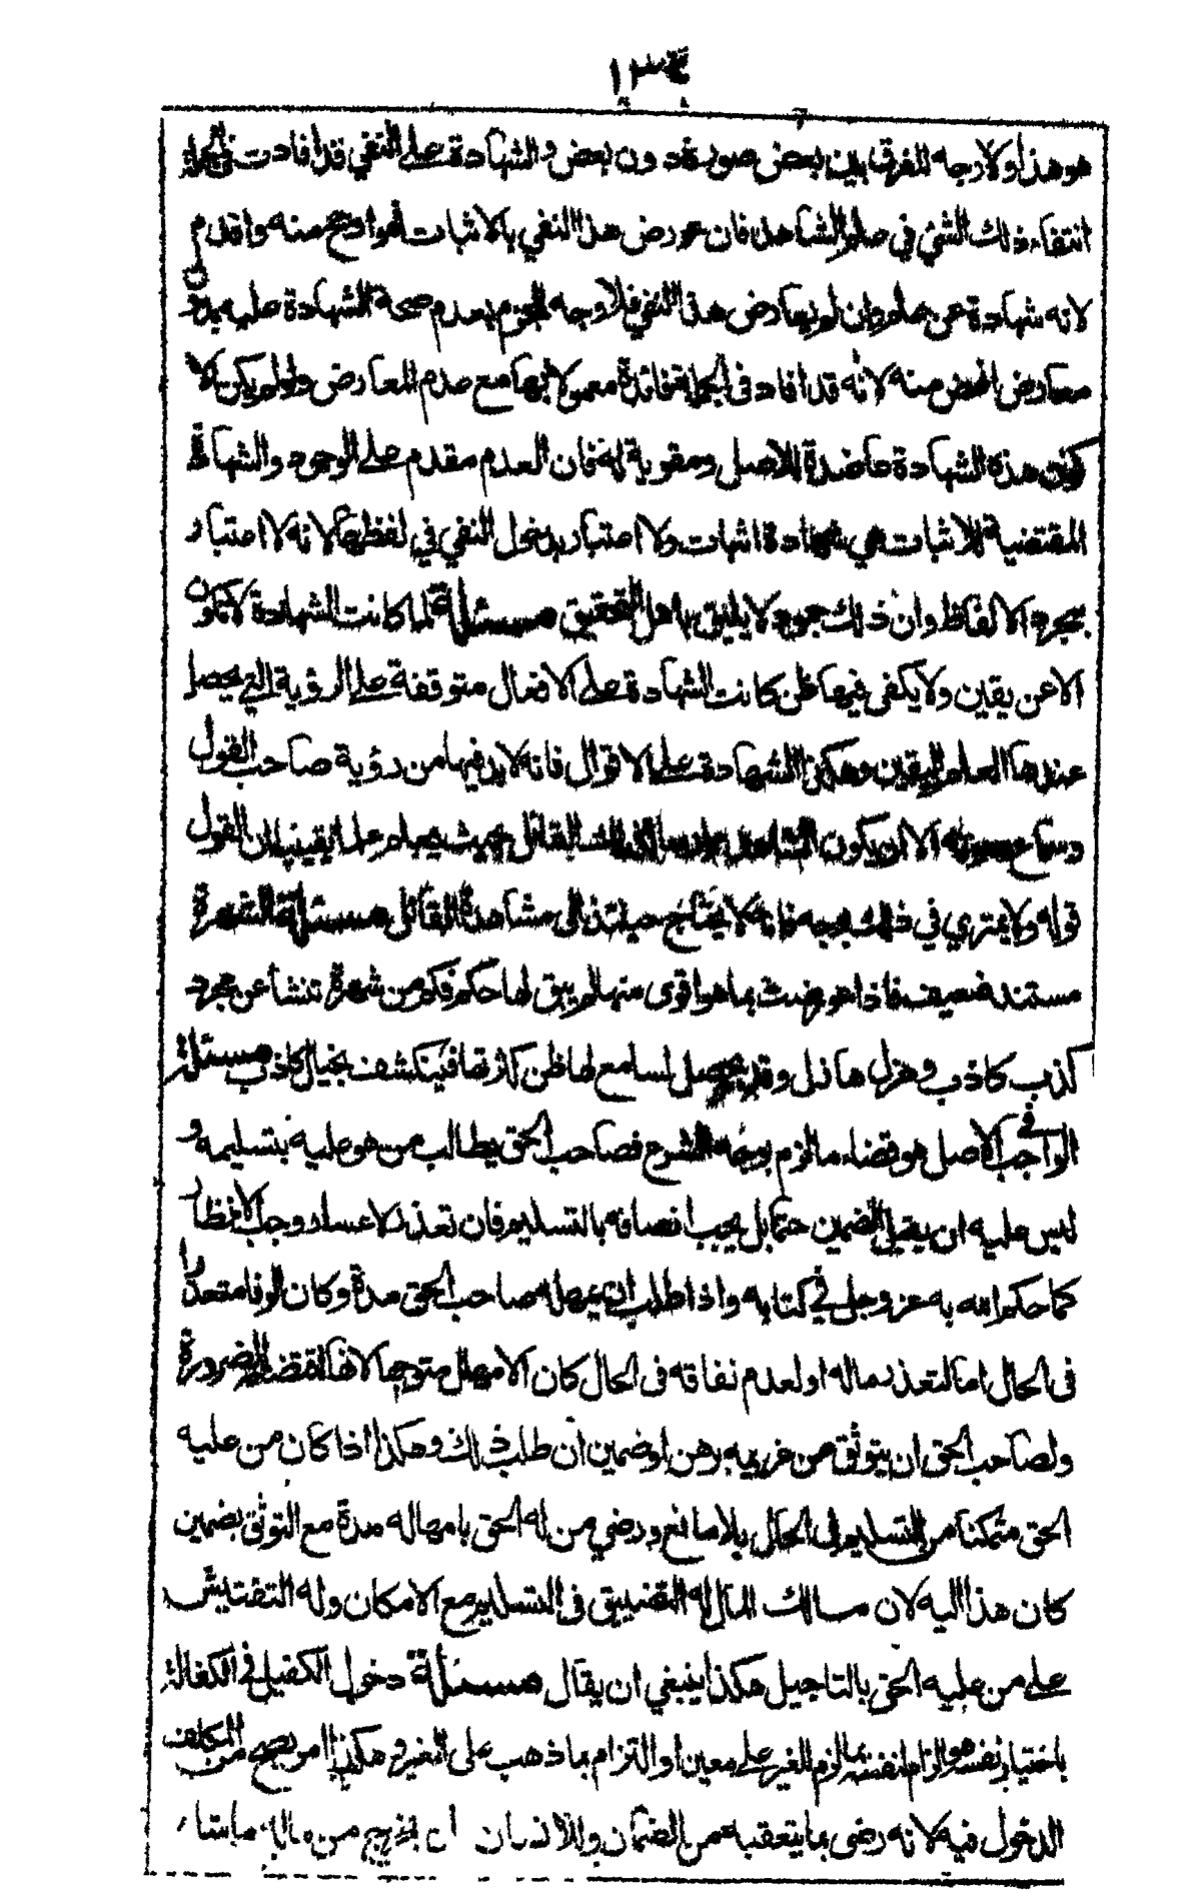 ١٣٤
هو هذا ولا وجه للفرق بين بعض صورة دون بعض والشهادة على النفي قد افادت في الجملة
انتفاء ذلك الشئ في علم الشاهد فان عورض هذا النفي بالاثبات فهو ارجح منه واقدم
لانه شهادة عن علم وان لم يعارض هذا النفي فلا وجه للجزم بعدم صحة الشهادة عليه بدون
معارض انهض منه لانه قد افاد في الجملة فائدة معمولا بها مع عدم المعارض ولو لم يكن الا
كون هذه الشهادة عاضدة للاصل ومقوية له فان العدم مقدم على الوجود والشهادة
المقتضية للاثبات هي شهادة اثبات ولا اعتبار بدخول النفي في لفظها لانه لا اعتبار
بمجرد الالفاظ وان ذلك جمود لا يليق باهل التحقيق مسئلة لما كانت الشهادة لا تكون
الا عن يقين ولا يكفي فيها ظن كانت الشهادة على الافعال متوقفة على الرؤية التي يحصل
عندها العلم اليقين وهكذا الشهادة على الاقوال فانه لا بد فيها من رؤية صاحب القول
وسماع صوته الا ان يكون الشاهد القائل بحيث يعلم علما يقينا ان القول
قوله ولا يمتري في ذلك بوجه فانه لا يحتاج حينئذ الى مشاهدة القائل مسئلة الشهرة
مستند ضعيف فاذا عورضت بما هو اقوى منها لم يبق لها حكم فكم من شهرة تنشأ عن مجرد
كذب كاذب وهزل هازل وقد يحصل لسامع لها ظن كثرتها فينكشف بخيال كاذب مسئلة
الواجب في الاصل هو قضاء ما لزم بوجه الشرع فصاحب الحق يطالب من هو عليه بتسليمه و
ليس عليه ان يقبل الضمين حتما بل يجب انصافه بالتسليم فان تعذر لاعسار وجب الانظار
كما حكم الله به عز وجل في كتابه واذا طلب ان يمهله صاحب الحق مدة وكان الوفا متعذرا
في الحال اما لتعذر ماله او لعدم نفاقه في الحال كان الامهال متوجها لاقتضاء الضرورة
ولصاحب الحق ان يتوثق من غريمه برهن او ضمين ان طلب ذلك وهكذا اذا كان من عليه
الحق متمكنا من التسليم في الحال بلا مانع ورضي من له الحق بامهاله مدة مع التوثق بضمين
كان هذا اليه لان مالك المال له التضييق في التسليم مع الامكان وله التفتيش
على من عليه الحق بالتاجيل هكذا ينبغي ان يقال مسئلة دخول الكفيل في الكفالة
باختيار نفسه هو الزام لنفسه بما لزم الغير على معين او التزام بما ذهب على الغير وهكذا امر يصح من المكلف
الدخول فيه لانه رضى بما يتعقبه من الضمان وللانسان ان يخرج من ماله ما شاء